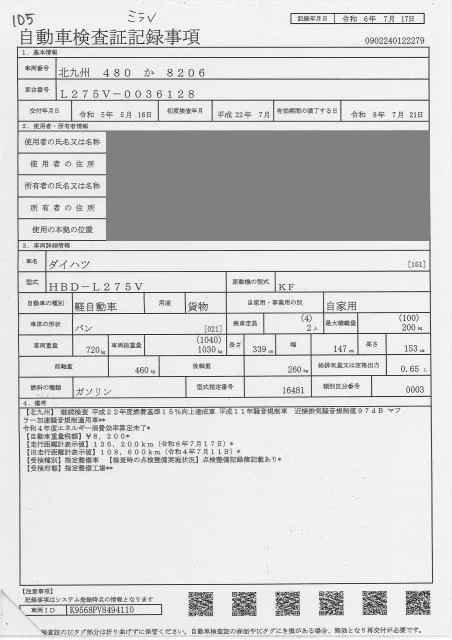 105
ミラV
記録年月日 令和 6年 7月 17日
自動車検査証記録事項
0902240122279
1．基本情報
車両番号 北九州 480 か 8206
車台番号 L275V-0036128
交付年月日 令和 5年 5月 16日 初度検査年月 平成 22年 7月 有効期間の満了する日 令和 8年 7月 21日
2．使用者・所有者情報
使用者の氏名又は名称
使用者の住所
所有者の氏名又は名称
所有者の住所
使用の本拠の位置
3．車両詳細情報
車名 ダイハツ [151]
型式 HBD-L275V 原動機の型式 KF
自動車の種別 軽自動車 用途 貨物 自家用・事業用の別 自家用
車体の形状 バン [021] 乗車定員 (4) 2人 最大積載量 (100) 200kg
車両重量 720kg 車両総重量 (1040) 1030kg 長さ 339cm 幅 147cm 高さ 153cm
前軸重 460kg 後軸重 260kg 総排気量又は定格出力 0.65L
燃料の種類 ガソリン 型式指定番号 16481 類別区分番号 0003
4．備考
【北九州】 継続検査 平成22年度燃費基準15%向上達成車 平成11年騒音規制車 近接排気騒音規制値97dB マフ
ラー加速騒音規制適用車**
令和4年度エネルギー消費効率算定未了*
【自動車重量税額】¥8,200*
【走行距離計表示値】136,200km（令和6年7月17日）*
【旧走行距離計表示値】108,600km（令和4年7月11日）*
【受検種別】指定整備車 【検査時の点検整備実施状況】点検整備記録簿記載あり*
【受検形態】指定整備工場**
【注意事項】
記録事項はシステム登録時点の情報となります
車両ID K9568PV8494110
検査証のICタグ部分は折り曲げずに保管ください。自動車検査証の券面やICタグにき損がある場合、無効となり再交付が必要です。